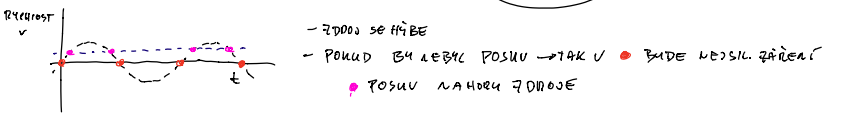 RYCHLOST
v
t
- ZDROJ SE HÝBE
- POKUD BY NEBYL POSUV → TAK V BUDE NEJSIL. ZÁŘENÍ
POSUV NAHORU ZDROJE